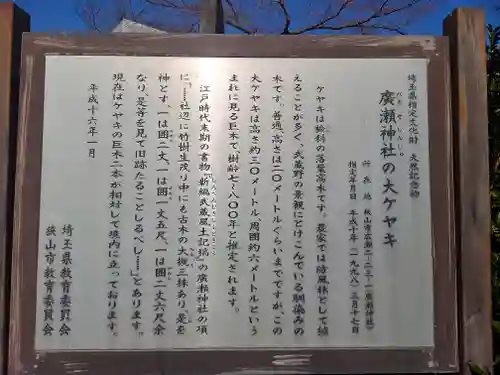 埼玉県指定文化財　天然記念物
廣瀬神社の大ケヤキ
ひろせじんじゃ
所在地　狭山市広瀬二-二三-一（廣瀬神社）
指定年月日　平成十年（一九九八）三月十七日
ケヤキは楡科の落葉高木です。農家では防風林として植
えることが多く、武蔵野の景観にとけこんでいる馴染みの
木です。普通、高さは二〇メートルぐらいまでですが、この
大ケヤキは高さ約三〇メートル、周囲約六メートルという
まれに見る巨木で、樹齢七～八〇〇年と推定されます。
江戸時代末期の書物『新編武蔵風土記稿』の廣瀬神社の項
に「……社辺に竹樹生茂り中にも古木の大槻三株あり、是を
神とす、一は囲二丈、一は囲一丈五尺、一は囲二丈六尺余
なり、是等を見て旧跡たることしるべし……」とあります。
現在はケヤキの巨木二本が相対して境内に立っております。
平成十六年一月
埼玉県教育委員会
狭山市教育委員会